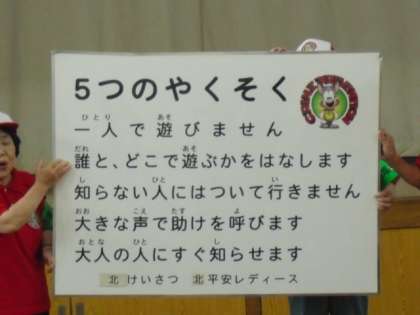 5つのやくそく
一人で遊びません
誰と、どこで遊ぶかをはなします
知らない人にはついて行きません
大きな声で助けを呼びます
大人の人にすぐ知らせます
北 けいさつ 北 平安レディース